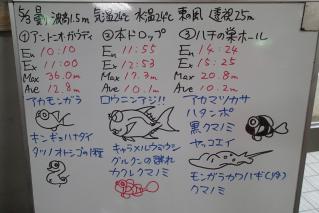 5/3 曇 波高1.5m 気温24℃ 水温24℃ 東の風 透視25m
①アントニオガウディ
En 10:10
Ex 11:00
Max 36.0m
Ave 12.8m
アカモンガラ
キンギョハナダイ
タツノオトシゴの1種
②本ドロップ
En 11:55
Ex 12:53
Max 17.3m
Ave 10.1m
ロウニンアジ!!
キャラメルウミウシ
グルクンの群れ
カクレクマノミ
③ハチの巣ホール
En 14:24
Ex 15:25
Max 20.8m
Ave 10.2m
アカマツカサ
ハタンポ
黒クマノミ
ヤッコエイ
モンガラカワハギ(幼)
クマノミ